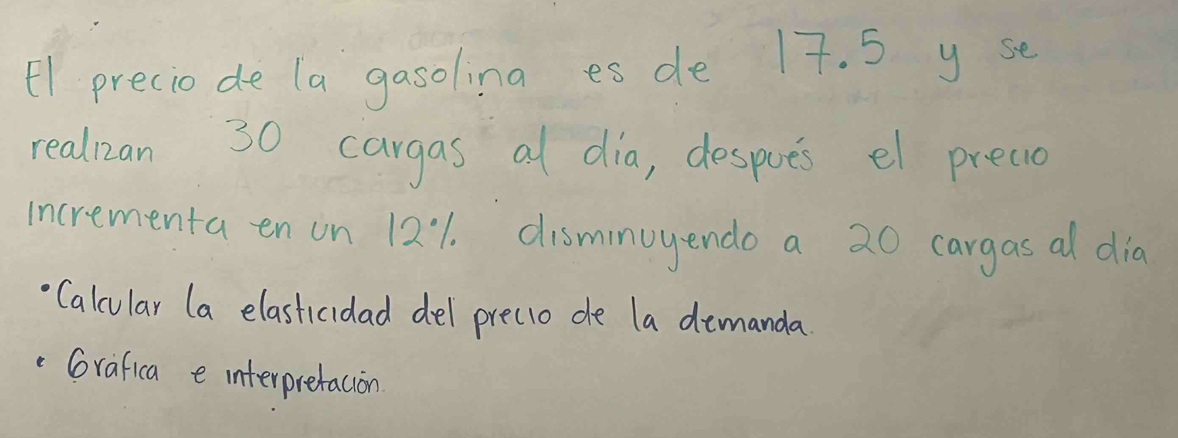 El precio de la gasolina es de 17.5 y se
realizan 30 cargas al día, después el precio
incrementa en un 12% disminuyendo a 20 cargas al día
• Calcular la elasticidad del precio de la demanda.
• Gráfica e interpretación.